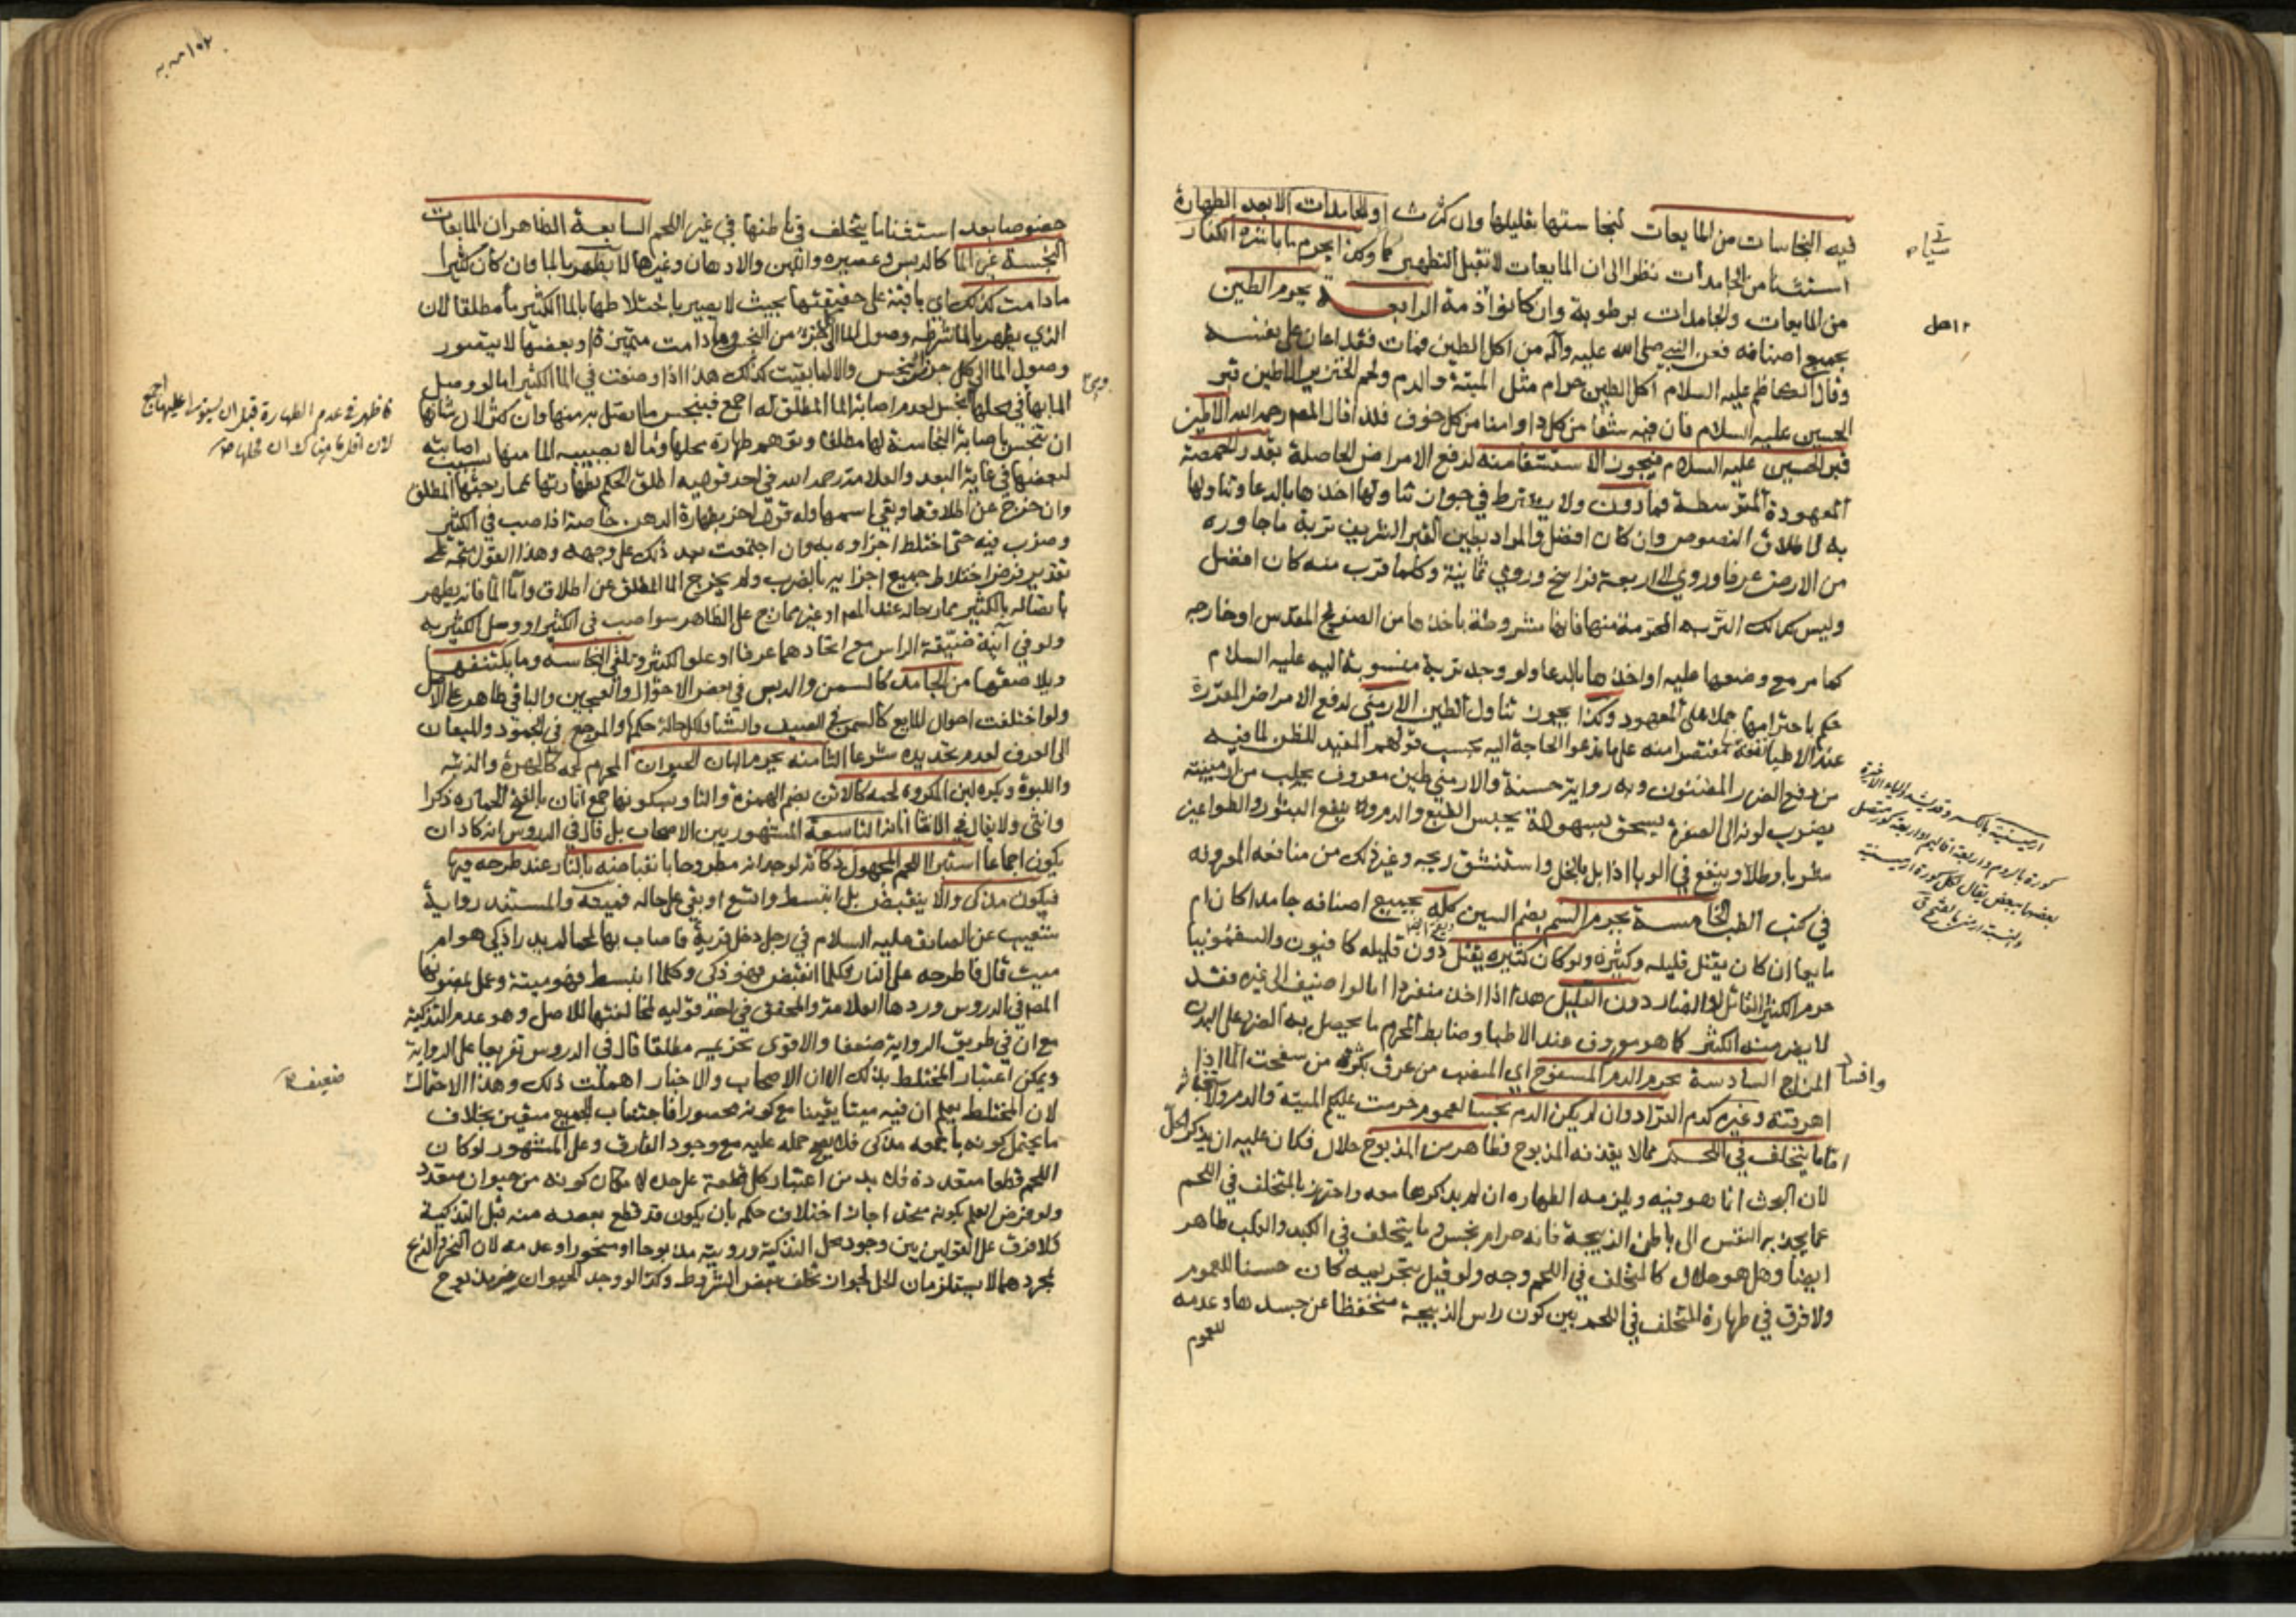 فيه النجاسات من المايعات لنجاستها بقليلها وان كثرت او الجامدات الا بعد الطهارة
استثنا من الجامدات نظرا الى ان المايعات لا تقبل التطهير كما وكذا يحرم ما باشره الكفار
من المايعات والجامدات برطوبة وان كانوا ذمة الرابعـــة يحرم الطين
بجميع اصنافه فعن النبي صلى الله عليه وآله من اكل الطين فمات فقد اعان على نفسه
وقال الكاظم عليه السلام اكل الطين حرام مثل الميتة والدم ولحم الخنزير الا طين قبر
الحسين عليه السلام فان فيه شفا من كل دا وامنا من كل خوف فلذا قال المصـ رحمه الله الا طين
قبر الحسين عليه السلام فيجوز الاستشفا منه لدفع الامراض الحاصلة بقدر الحمصة
المعهودة المتوسطة فما دون ولا يشترط في جواز تناولها اخذها بالدعا وتناولها
به لاطلاق النصوص وان كان افضل والمراد بطين القبر الشريف تربة ما جاوره
من الارض عرفا وروي الى اربعة فراسخ وروي ثمانية وكلما قرب منه كان افضل
وليس كذلك التربة المحترمة منها فانها مشروطة باخذها من الضريح المقدس او خارجه
كما مر مع وضعها عليه او اخذها بالدعا ولو وجد تربة منسوبة اليه عليه السلام
حكم باحترامها حملا على المعهود وكذا يجوز تناول الطين الارمني لدفع الامراض المقررة
عند الاطبا نفعه مقتصرا منه على ما تدعوا الحاجة اليه بحسب قولهم المفيد للظن لما فيه
من دفع الضرر المظنون وبه رواية حسنة والارمني طين معروف يجلب من ارمينية
يضرب لونه الى الصفرة يسحق بسهولة يحبس الطبع والدم وينفع البثور والطواعين
شربا وطلا وينفع في الوبا اذا بل بالخل واستنشق ريحه وغير ذلك من منافعه المعروفة
في كتب الطب الخامسة يحرم السم بضم السين كله بجميع اصنافه جامدا كان ام
مايعا ان كان يقتل قليله وكثيره ولو كان كثيره يقتل دون قليله كافيون والسقمونيا
حرم الكثير القاتل او الضار دون القليل هذا اذا اخذ منفردا اما لو اضيف الى غيره فقد
لا يضر منه الكثير كما هو معروف عند الاطبا وضابط المحرم ما يحصل به الضرر على البدن
وافساد المزاج السادسة يحرم الدم المسفوح اي المنصب من عرق بكثرة من سفحت الما اذا
اهرقته وغيره كدم القراد وان لم يكن الدم نجسا لعموم حرمت عليكم الميتة والدم
اما ما يتخلف في اللحم مما لا يقذفه المذبوح فطاهر من المذبوح حلال فكان عليه ان يذكر الحل
لان البحث انما هو فيه ويلزمه الطهارة ان لم يذكرها معه واحترز بالمتخلف في اللحم
عما يجذبه النفس الى باطن الذبيحة فانه حرام نجس وما يتخلف في الكبد والقلب طاهر
ايضا وهل هو حلال كالمتخلف في اللحم وجه ولو قيل بتحريمه كان حسنا للعموم
ولا فرق في طهارة المتخلف في اللحم بين كون راس الذبيحة منخفضا عن جسدها وعدمه
للعموم
ارمينية بالكسر وقد يشدد الياء الاخيرة
كورة بالروم او اربعة اقاليم او اربعة كور متصل
بعضها ببعض يقال لكل كورة ارمينية
والنسبة ارمني بالفتح ق
خصوصا بعد استثنا ما يتخلف في باطنها في غير اللحم السابعة الظاهر ان المايعات
النجسة غير الما كالدبس وعصيره واللبن والادهان وغيرها لا يطهر بالما وان كان كثيرا
ما دامت كذلك اي باقية على حقيقتها بحيث لا يصير باختلاطها بالما الكثير ما مطلقا لان
الذي يطهر بالما شرطه وصول الما الى كل جزء من النجس وما دامت متميزة او بعضها لا يتصور
وصول الما الى كل جزء نجس والا لما بقيت كذلك هذا اذا وضعت في الما الكثير اما لو وصل
الما بها في محلها النجس لعدم اصابة الما المطلق له اجمع فينجس ما اتصل به منها وان كثر لان شانها
ان تنجس باصابة النجاسة لها مطلقا وتوهم طهارة محلها وما لا يصيبه الما منها بسبب اصابته
لبعضها في غاية البعد والعلامة رحمه الله في احد قوليه اطلق الحكم بطهارتها بممازجتها المطلق
وان خرج عن اطلاقه او بقي اسمها وله قول اخر بطهارة الدهن خاصة اذا صب في الكثير
وضرب فيه حتى اختلط اجزاوه به وان اجتمعت بعد ذلك على وجهه وهذا القول متجه على
تقدير فرض اختلاط جميع اجزايه بالضرب ولم يخرج الما المطلق عن اطلاق واما الما فانه يطهر
باتصاله بالكثير ممازجا له عند المصـ او غير ممازج على الظاهر سوا صب في الكثير او وصل الكثير به
ولو في آنية ضيقة الراس مع اتحادهما عرفا او علو الكثير وتلقى النجاسة وما يكتنفها
ويلاصقها من الجامد كالسمن والدبس في بعض الاحوال والعجين والباقي طاهر على الاصل
ولو اختلفت احوال المايع كالسمن في الصيف والشتا فلكل حالة حكمها والمرجع في الجمود والميعان
الى العرف لعدم تحديده شرعا الثامنة يحرم البان الحيوان المحرم لحمه كالهرة والذئبه
واللبوة ويكره لبن المكروه لحمه كالاتن بضم الهمزة والتا وبسكونها جمع اتان بالفتح الحمارة ذكرا
وانثى ولا يقال في الانثى اتانة التاسعة المشهور بين الاصحاب بل قال في الدروس انه كاد ان
يكون اجماعا استبرا اللحم المجهول ذكاته لوجدانه مطروحا بانقباضه بالنار عند طرحه فيها
فيكون مذكى والا ينقبض بل انبسط واتسع او بقي على حاله فميتة والمستند رواية
شعيب عن الصادق عليه السلام في رجل دخل قرية فاصاب بها لحما لم يدر اذكي هو ام
ميت قال فاطرحه على النار وكلما انقبض فهو ذكي وكلما انبسط فهو ميتة وعمل بمضمونها
المصـ في الدروس وردها العلامة والمحقق في احد قوليه لمخالفتها للاصل وهو عدم التذكية
مع ان في طريق الرواية ضعفا والاقوى تحريمه مطلقا قال في الدروس تفريعا على الرواية
ويمكن اعتبار المختلط بذلك الا ان الاصحاب والاخبار اهملت ذلك وهذا الاحتمال
لان المختلط يعلم ان فيه ميتا يقينا مع كونه محصورا فاجتناب الجميع متعين بخلاف
ما يحتمل كونه باجمعه مذكى فلا يصح حمله عليه مع وجود الفارق وعلى المشهور لو كان
اللحم قطعا متعددة فلا بد من اعتبار كل قطعة على حدة لامكان كونه من حيوان متعدد
ولو فرض العلم بكونه متحدا جاز اختلاف حكمه بان يكون قد قطع بعضه منه قبل التذكية
فلا فرق على القولين بين وجود محل التذكية ورويته مذبوحا او منحورا وعدمه لان النحر والذبح
بمجردهما لا يستلزمان الحل لجواز تخلف بعض الشروط وكذا لو وجد الحيوان غير مذبوح
ضعيف